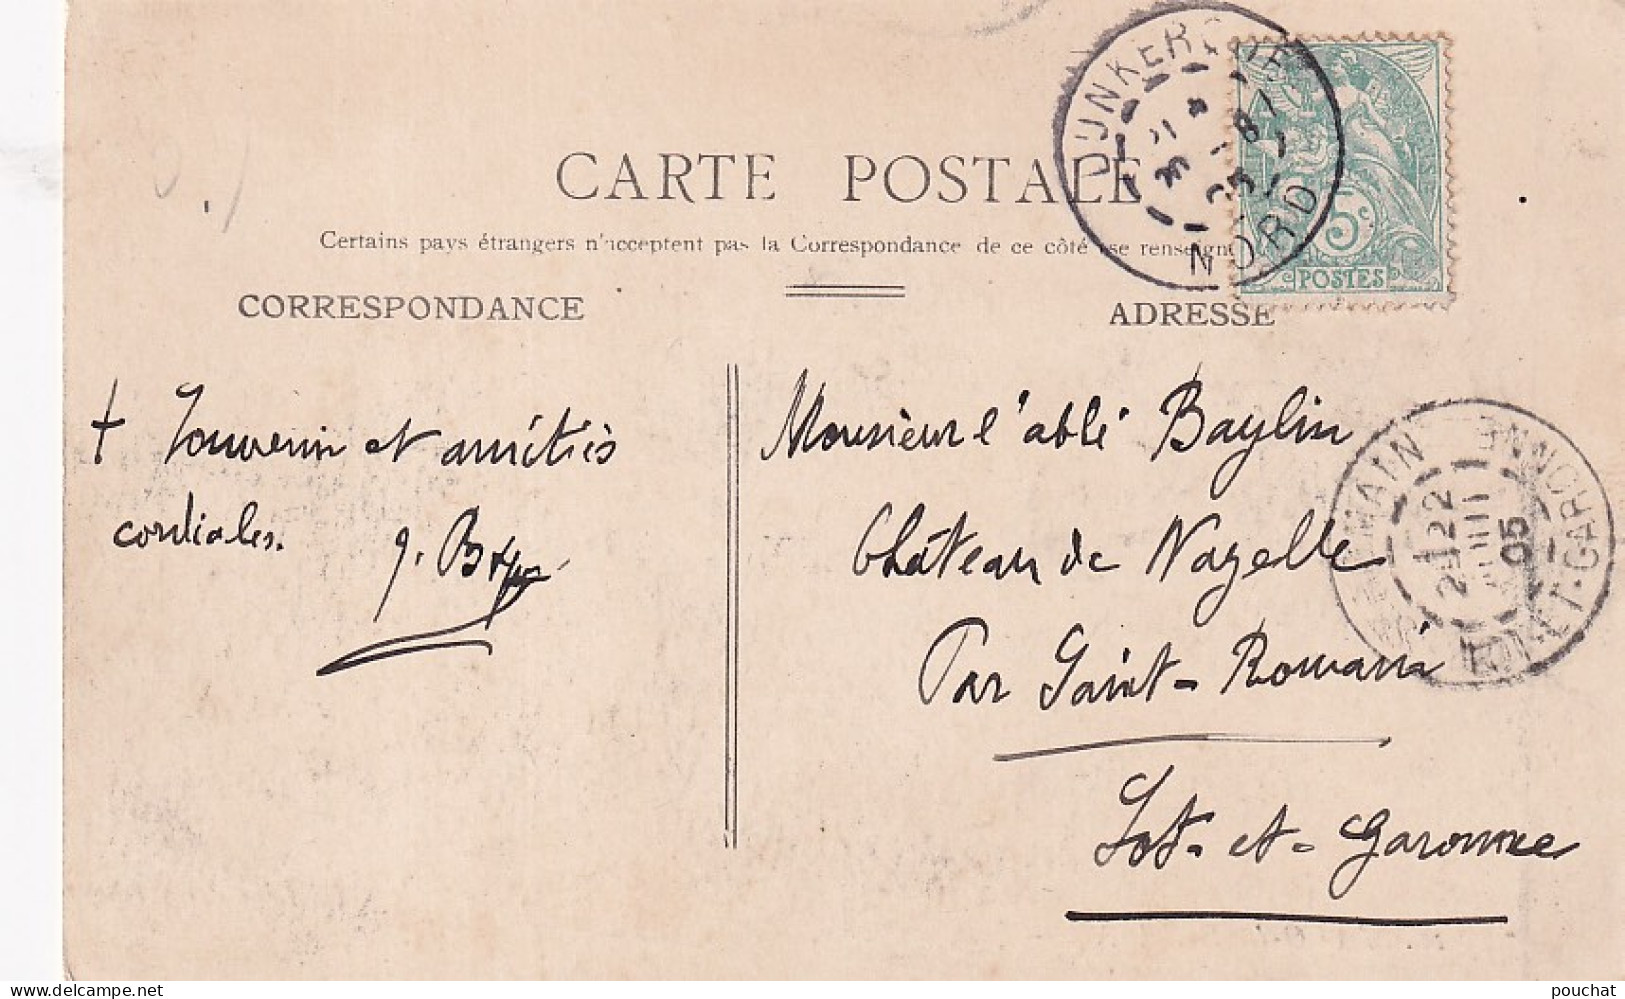 DUNKERQUE
NORD
5c
POSTES
CARTE POSTALE
Certains pays étrangers n'acceptent pas la Correspondance de ce côté (se renseign
CORRESPONDANCE
ADRESSE
+ Souvenir et amitiés
cordiales.
Monsieur l'abbé Baylin
Château de Nazelle
Par Saint-Romain
Lot-et-Garonne
MAIN
LOT-ET-GARONNE
22
05
pouchat